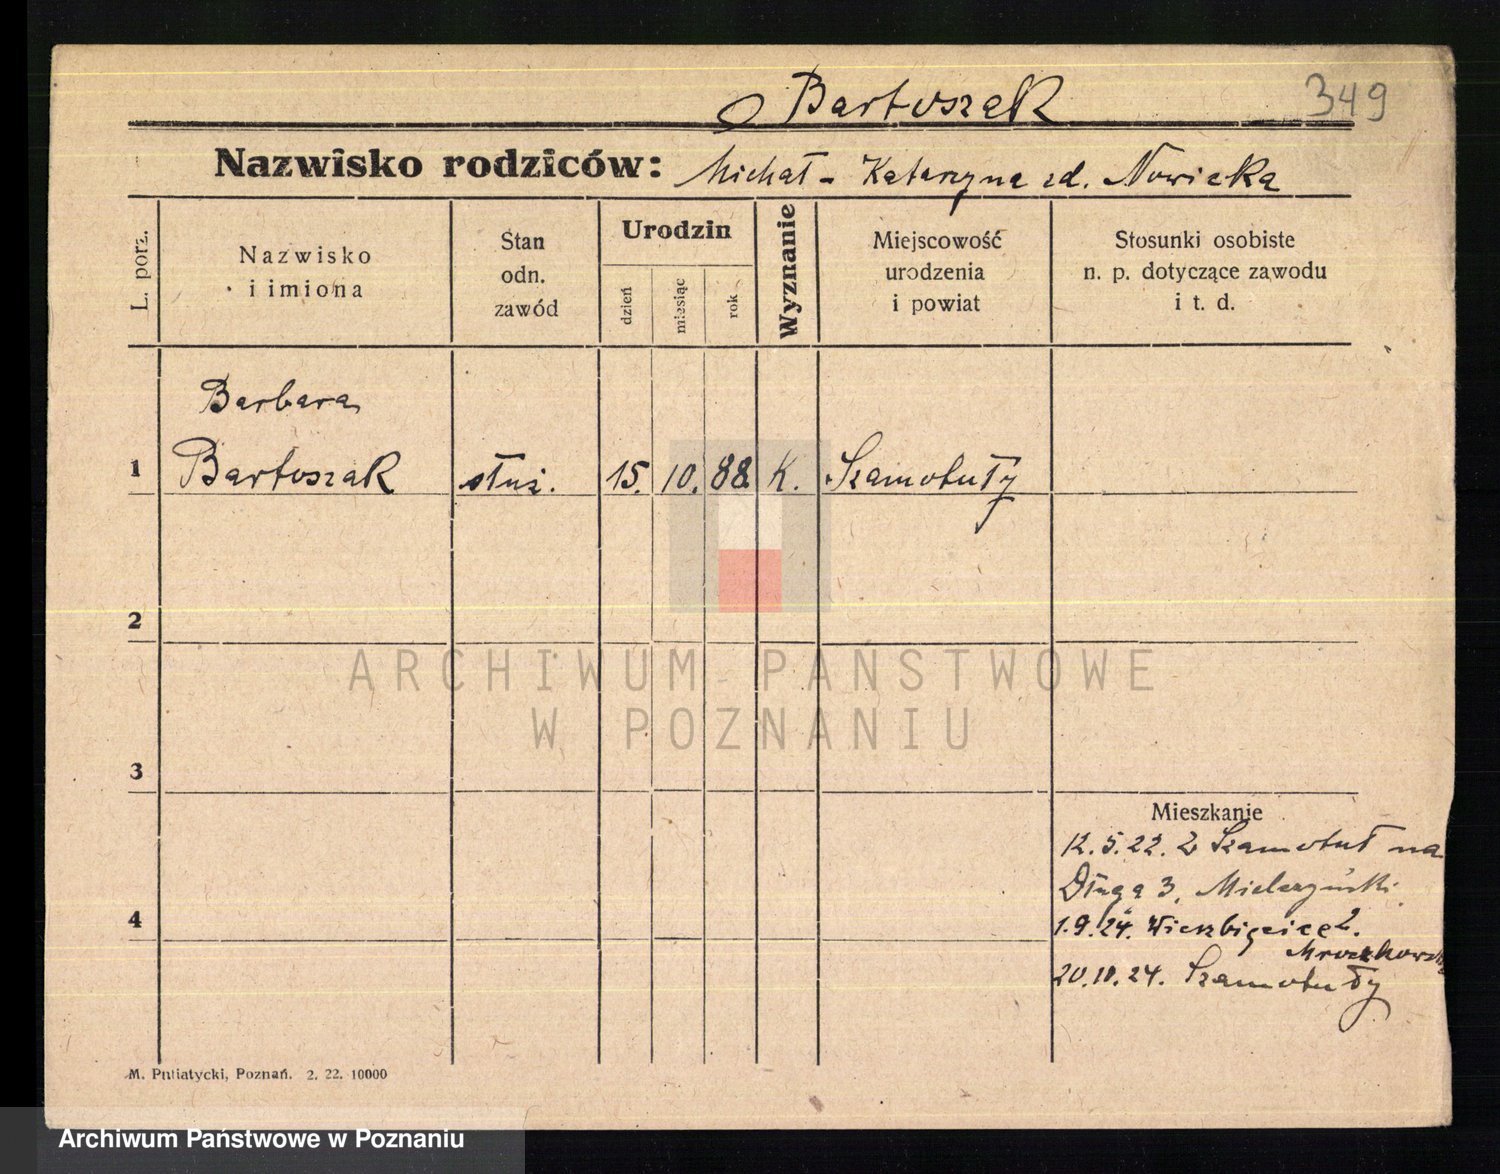 Bartoszak 349
Nazwisko rodziców: Michał - Katarzyna zd. Nowicka
L. porz.
Nazwisko
i imiona
Stan
odn.
zawód
Urodzin
dzień miesiąc rok
Wyznanie
Miejscowość
urodzenia
i powiat
Stosunki osobiste
n. p. dotyczące zawodu
i t. d.
Barbara
1 Bartoszak służ. 15. 10. 88. K. Szamotuły
2
ARCHIWUM PAŃSTWOWE
W POZNANIU
3
Mieszkanie
12.5.22. Z Szamotuł na
Długa 3, Mielczyński
4
1.9.24. Wierzbięcice 2.
20.10.24. Szamotuły
M. Putiatycki, Poznań. 2. 22. 10000
Archiwum Państwowe w Poznaniu